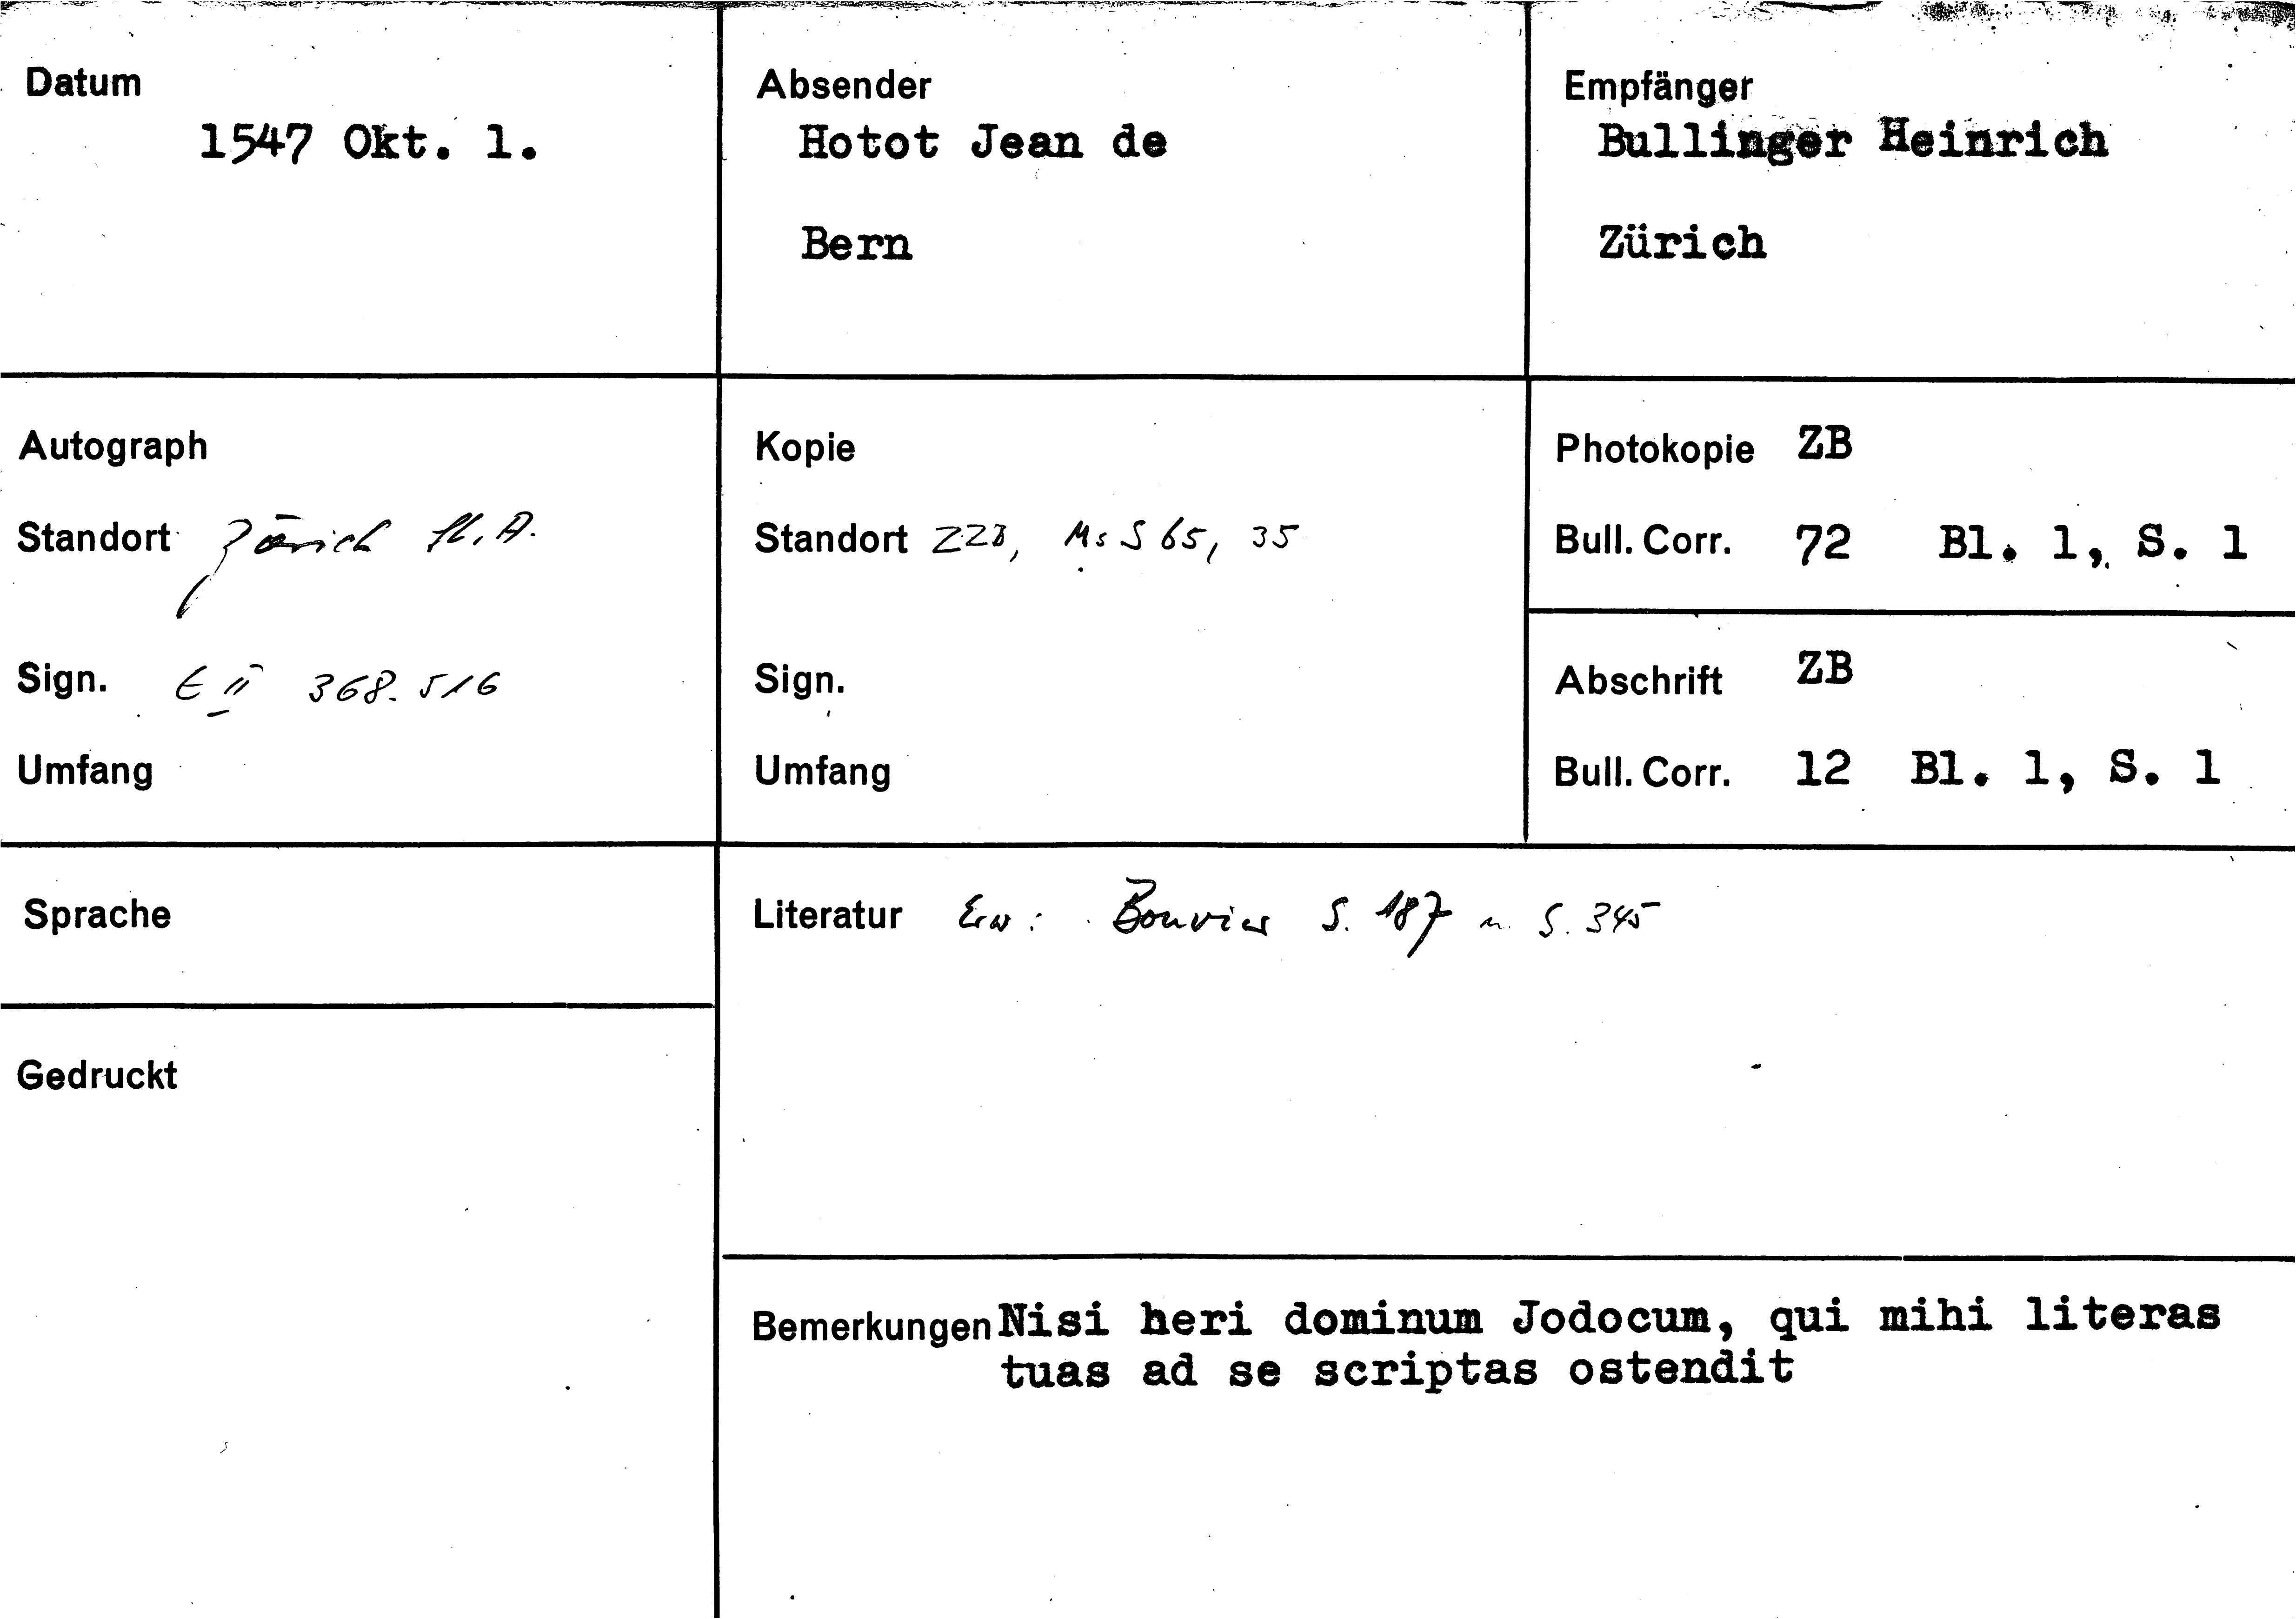 Datum
1547 Okt. 1.
Absender
Hotot Jean de
Bern
Empfänger
Bullinger Heinrich
Zürich
Autograph
Standort Zürich St. A.
Sign. E II 368. 516
Umfang
Kopie
Standort ZZB, Ms S 65, 35
Sign.
Umfang
Photokopie ZB
Bull. Corr. 72 Bl. 1, S. 1
Abschrift ZB
Bull. Corr. 12 Bl. 1, S. 1
Sprache
Gedruckt
Literatur Erw: Bouvier S. 187 u. S. 345
Bemerkungen Nisi heri dominum Jodocum, qui mihi literas
tuas ad se scriptas ostendit